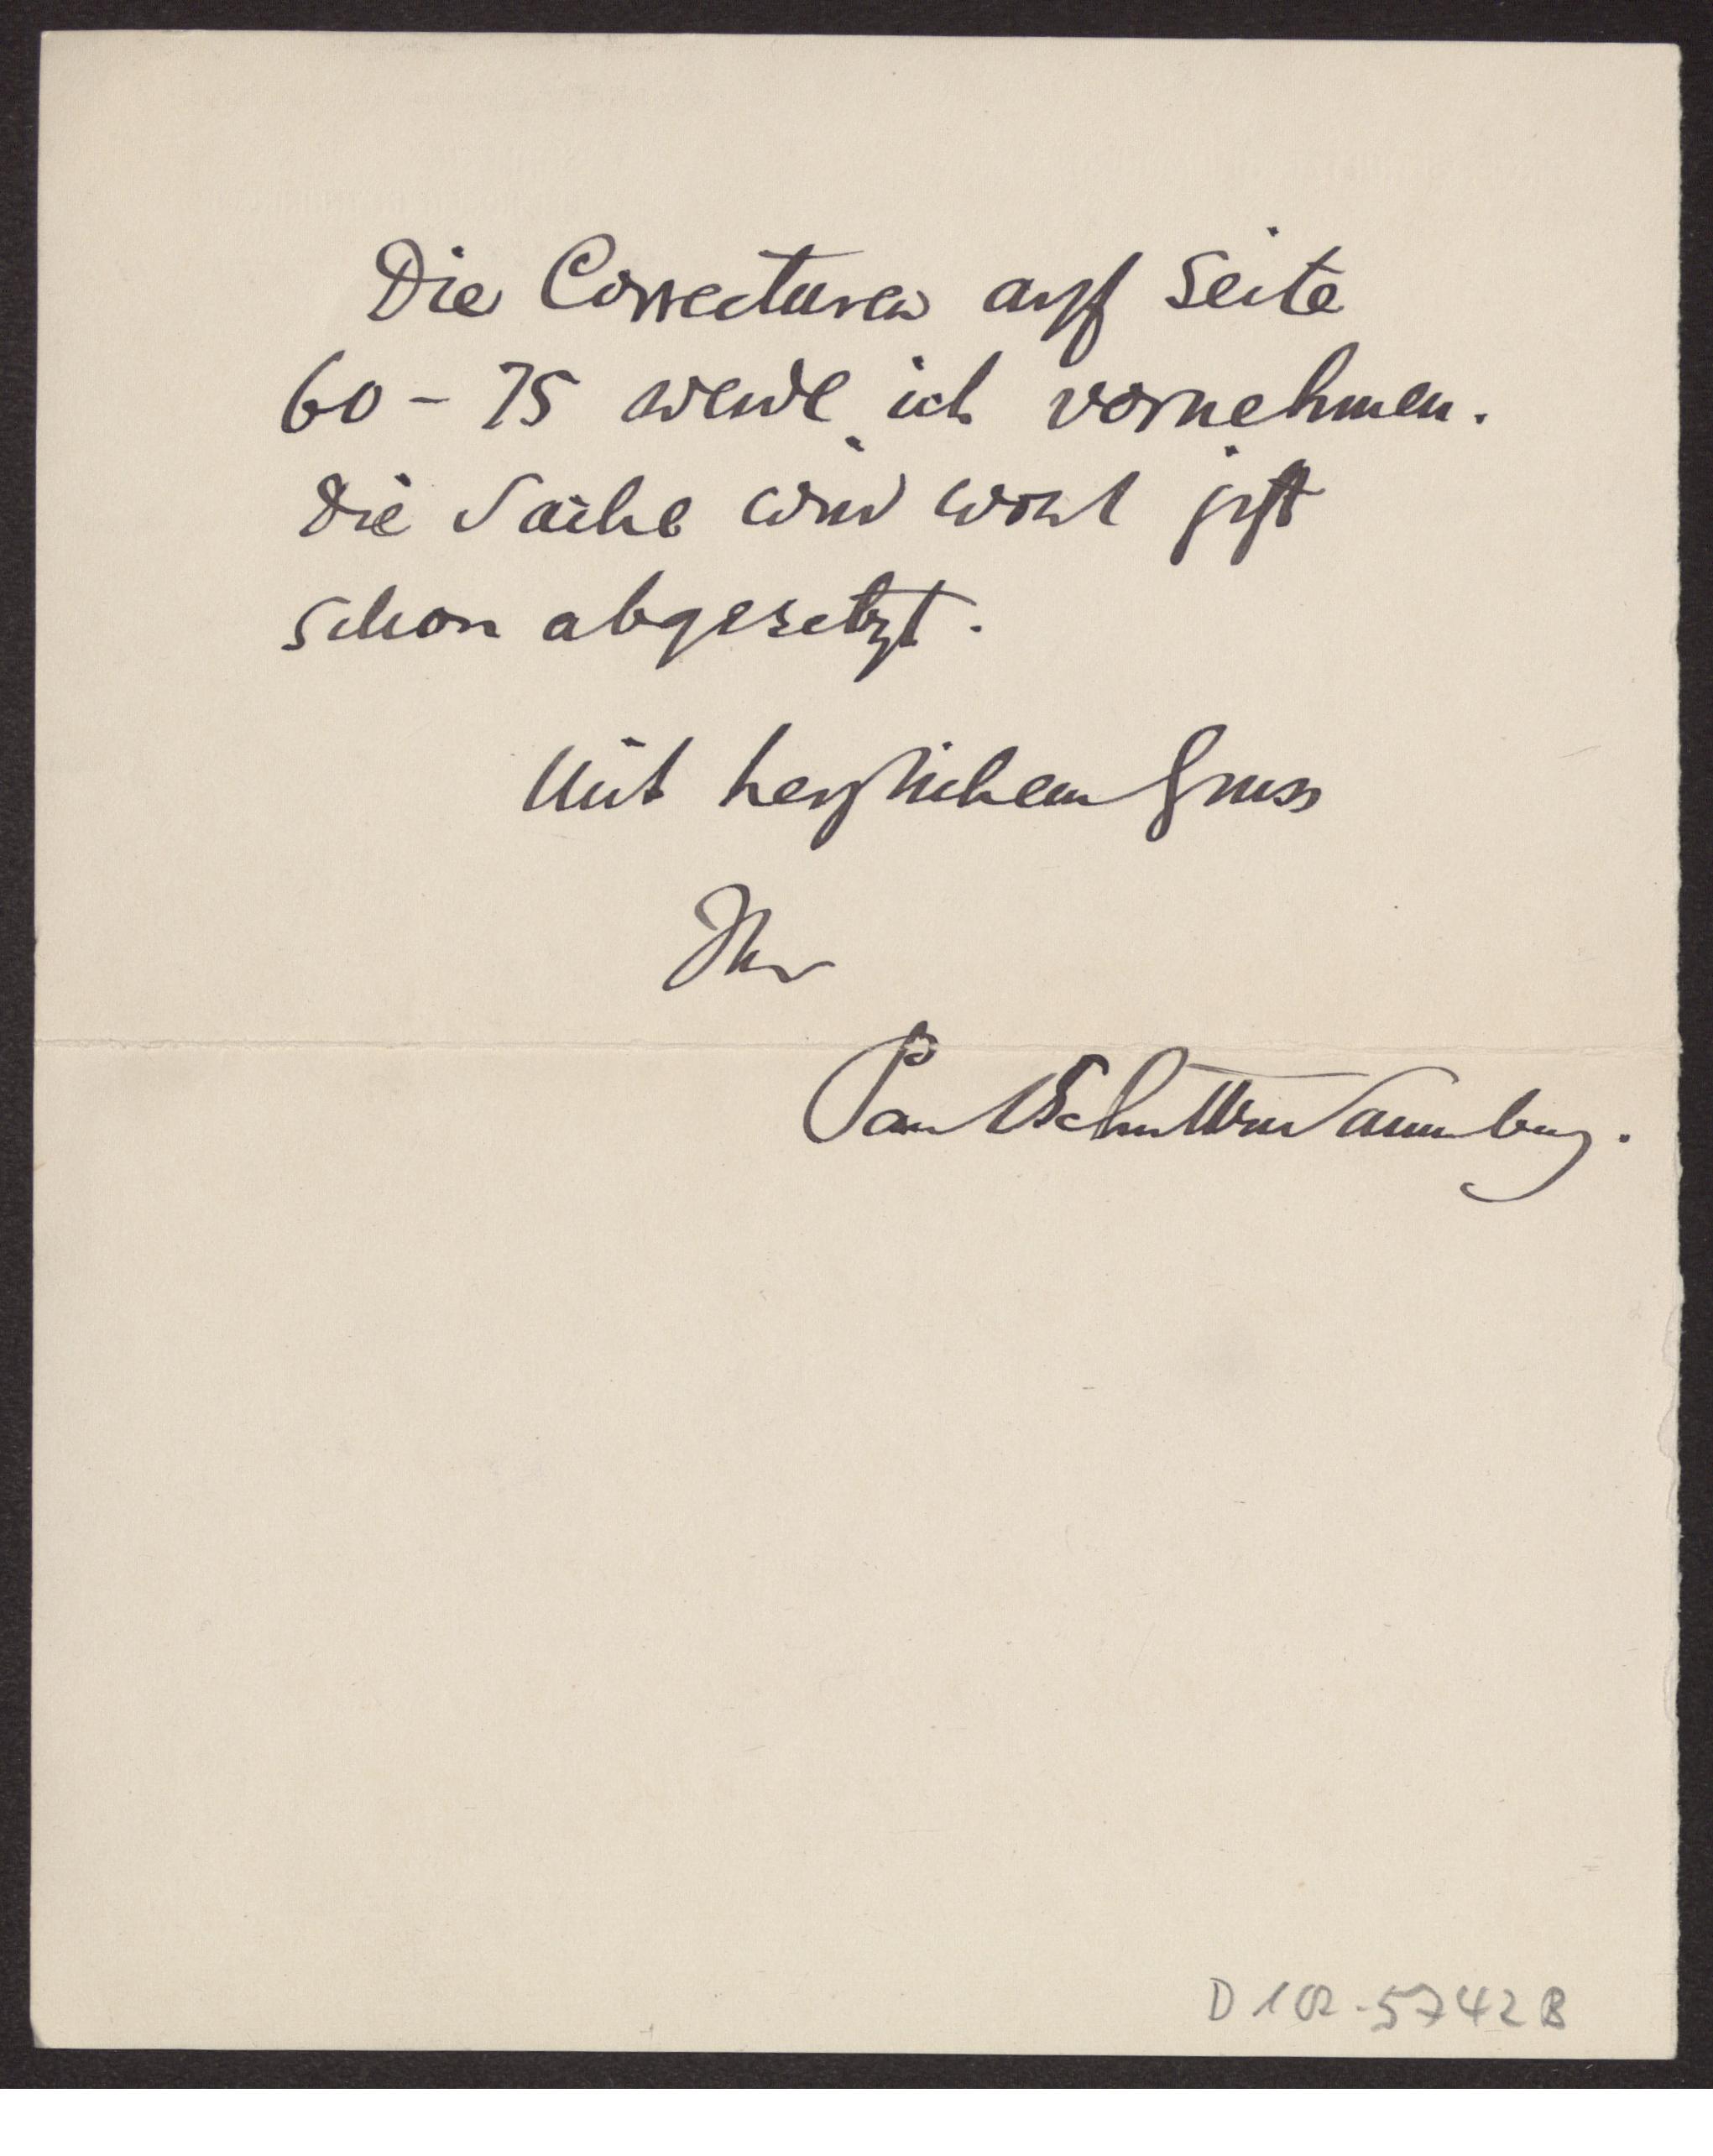 Die Correcturen auf Seite
60 - 75 werde ich vornehmen.
Die Sache wird wohl jetzt
schon abgesetzt.
Mit herzlichem Gruss
Ihr
Paul Schultze Naumburg.
D 102-5742 B